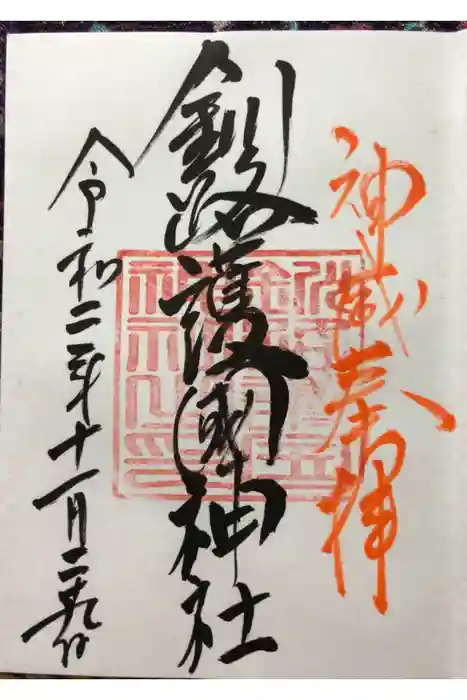 神 奉拝
釧路護國神社
令和二年十一月二十九日